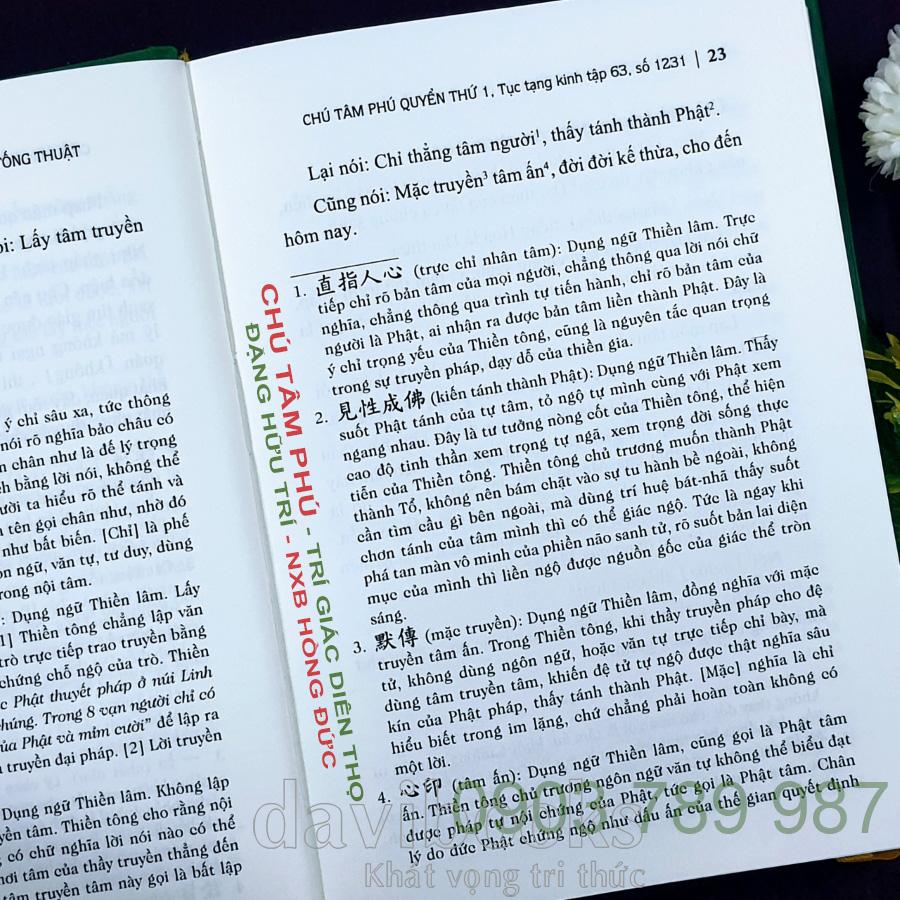 TỐNG THUẬT
i: Lấy tâm truyền
ý chỉ sâu xa, tức thông
nói rõ nghĩa bảo châu có
n chân như là để lý trọng
h bằng lời nói, không thể
ười ta hiểu rõ thể tánh và
n tên gọi chân như, nhờ đó
như bất biến. [Chỉ] là phế
ôn ngữ, văn tự, tư duy, dùng
rong nội tâm.
: Dụng ngữ Thiền lâm. Lấy
1] Thiền tông chẳng lập văn
trò trực tiếp trao truyền bằng
chứng chỗ ngộ của trò. Thiền
c Phật thuyết pháp ở núi Linh
húng. Trong 8 vạn người chỉ có
ủa Phật và mỉm cười” để lập ra
truyền đại pháp. [2] Lời truyền
Dụng ngữ Thiền lâm. Không lập
yền tâm. Thiền tông cho rằng nội
có chữ nghĩa lời nói nào có thể
ơi tâm của thầy truyền thẳng đến
tâm truyền tâm này gọi là bất lập
CHÚ TÂM PHÚ QUYỂN THỨ 1, Tục tạng kinh tập 63, số 1231 | 23
Lại nói: Chỉ thẳng tâm người¹, thấy tánh thành Phật².
Cũng nói: Mặc truyền³ tâm ấn⁴, đời đời kế thừa, cho đến
hôm nay.
1. 直指人心 (trực chỉ nhân tâm): Dụng ngữ Thiền lâm. Trực
tiếp chỉ rõ bản tâm của mọi người, chẳng thông qua lời nói chữ
nghĩa, chẳng thông qua trình tự tiến hành, chỉ rõ bản tâm của
người là Phật, ai nhận ra được bản tâm liền thành Phật. Đây là
ý chỉ trọng yếu của Thiền tông, cũng là nguyên tắc quan trọng
trong sự truyền pháp, dạy dỗ của thiền gia.
2. 見性成佛 (kiến tánh thành Phật): Dụng ngữ Thiền lâm. Thấy
suốt Phật tánh của tự tâm, tỏ ngộ tự mình cùng với Phật xem
ngang nhau. Đây là tư tưởng nòng cốt của Thiền tông, thể hiện
cao độ tinh thần xem trọng tự ngã, xem trọng đời sống thực
tiễn của Thiền tông. Thiền tông chủ trương muốn thành Phật
thành Tổ, không nên bám chặt vào sự tu hành bề ngoài, không
cần tìm cầu gì bên ngoài, mà dùng trí huệ bát-nhã thấy suốt
chơn tánh của tâm mình thì có thể giác ngộ. Tức là ngay khi
phá tan màn vô minh của phiền não sanh tử, rõ suốt bản lai diện
mục của mình thì liền ngộ được nguồn gốc của giác thể tròn
sáng.
3. 默傳 (mặc truyền): Dụng ngữ Thiền lâm, đồng nghĩa với mặc
truyền tâm ấn. Trong Thiền tông, khi thầy truyền pháp cho đệ
tử, không dùng ngôn ngữ, hoặc văn tự trực tiếp chỉ bày, mà
dùng tâm truyền tâm, khiến đệ tử tự ngộ được thật nghĩa sâu
kín của Phật pháp, thấy tánh thành Phật. [Mặc] nghĩa là chỉ
hiểu biết trong im lặng, chứ chẳng phải hoàn toàn không có
một lời.
4. 心印 (tâm ấn): Dụng ngữ Thiền lâm, cũng gọi là Phật tâm
ấn. Thiền tông chủ trương ngôn ngữ văn tự không thể biểu đạt
được pháp tự nội chứng của Phật, tức gọi là Phật tâm. Chân
lý do đức Phật chứng ngộ như dấu ấn của thế gian quyết định
CHÚ TÂM PHÚ - TRÍ GIÁC DIÊN THỌ
ĐẶNG HỮU TRÍ - NXB HỒNG ĐỨC
davibooks
0903 789 987
Khát vọng tri thức